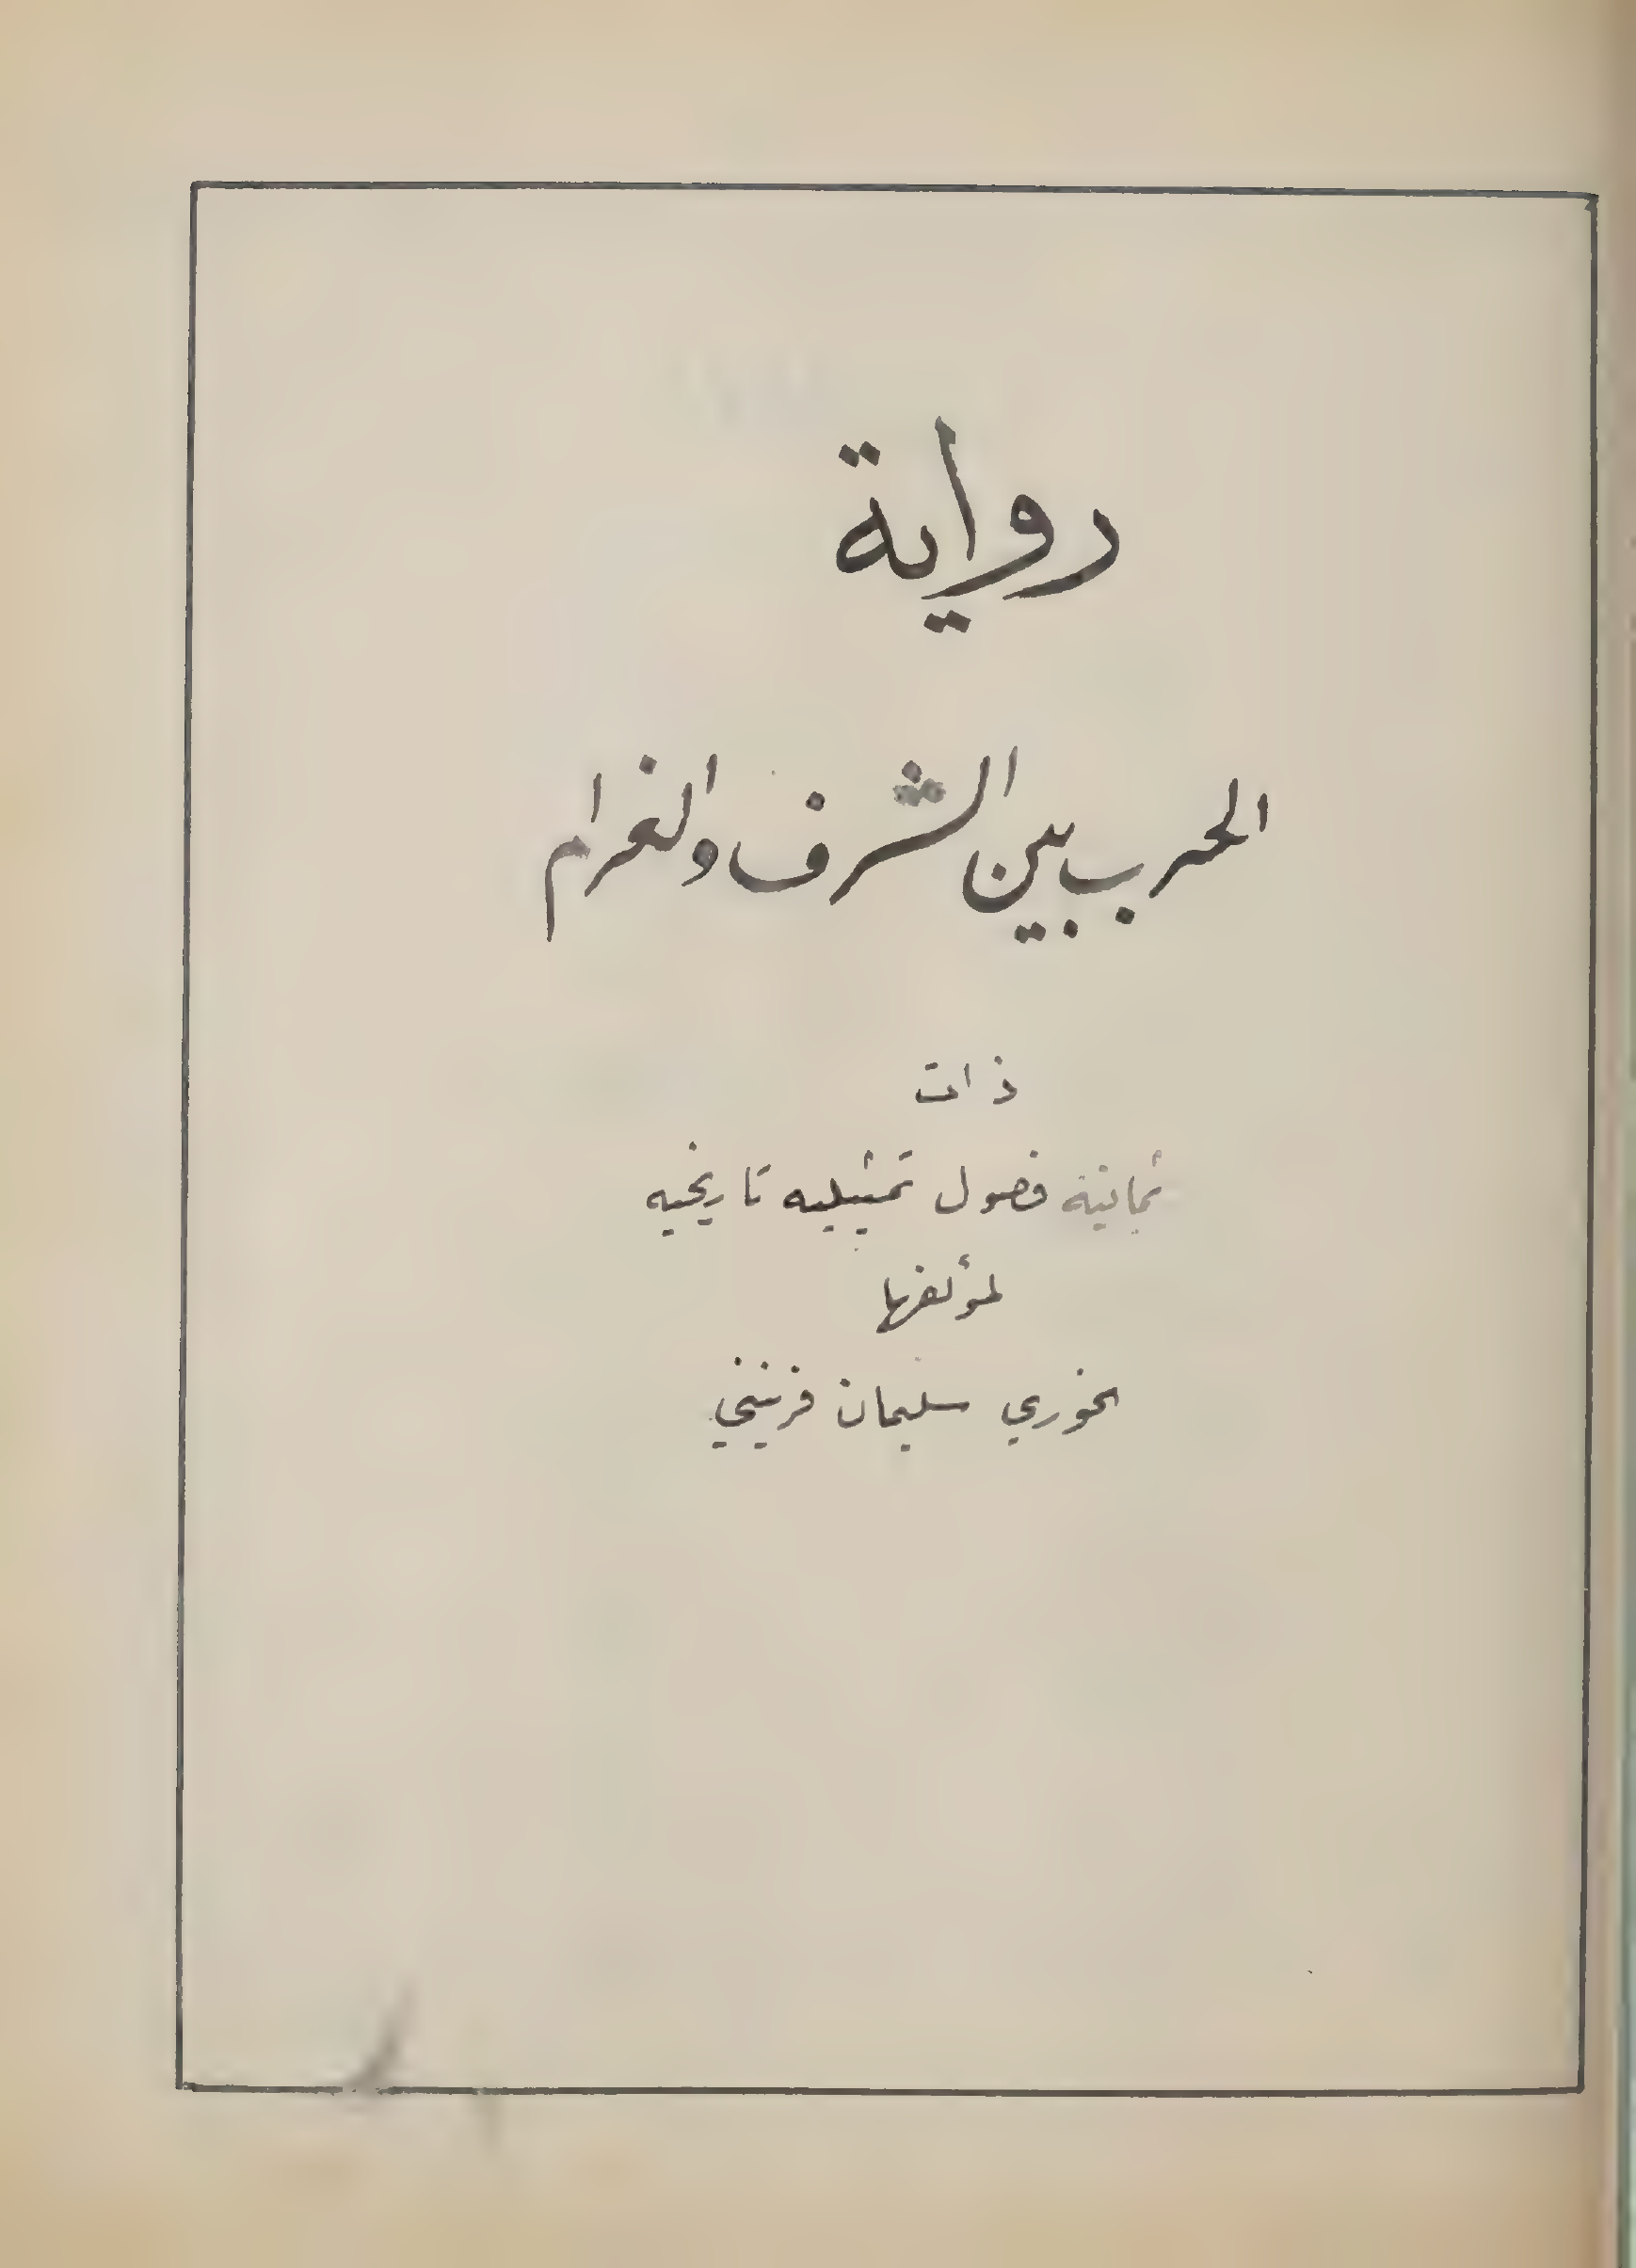 رواية
الحرب بين الشرف والغرام
ذات
ثمانية فصول تمثيليه تاريخيه
لمؤلفها
الخوري سليمان فرنيني